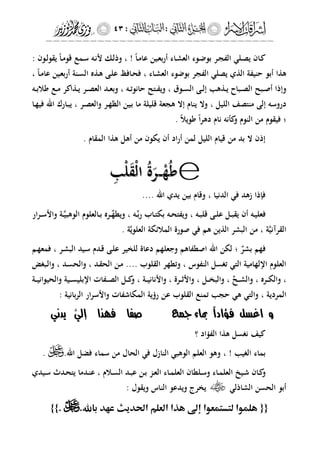 كان يصلي الفجر بوضوء العشاء أربعين عاماً ! ، وذلك لأنه سمع قوماً يقولون :
هذا أبو حنيفة الذي يصلي الفجر بوضوء العشاء ، فحافظ على هذه السنة أربعين عاماً ،
وإذا أصبح الصباح يذهب إلى السوق ، ويفتح حانوته ، وبعد العصر يذاكر مع طلابه
دروسه إلى منتصف الليل ، ولا ينام إلا هجعة قليلة ما بين الظهر والعصر ، يبارك الله فيها
؛ فيقوم من النوم وكأنه نام دهراً طويلاً .
إذن لا بد من قيام الليل لمن أراد أن يكون من أهل هذا المقام .
طُهْرَةُ الْقَلْبِ
فإذا زهد في الدنيا ، وقام بين يدي الله ....
فعليه أن يقبل على قلبه ، ويفتحه بكتاب ربِّه ، ويطهِّره بالعلوم الوهبيَّة والأسرار
القرآنيَّة ، من البشر الذين هم في صورة الملائكة العلويَّة .
فهم بشرٌ ؛ لكن الله اصطفاهم وجعلهم دعاة للخير على قدم سيد البشر ، فمعهم
العلوم الإلهامية التي تغسل النفوس ، وتطهر القلوب .... من الحقد ، والحسد ، والبغض
، والكره ، والشحِّ ، والبخل ، والأثرة ، والأنانية ، وكل الصفات الإبليسية والحيوانية
المردية ، والتي هي حجب تمنع القلوب عن رؤية المكاشفات والأسرار الربانية :
و اغسل فؤاداً بماء جمع صفا فهذا إليَّ يدني
كيف نغسل هذا الفؤاد ؟
بماء الغيب ! ، وهو العلم الوهبي النازل في الحال من سماء فضل الله .
وكان شيخ العلماء وسلطان العلماء العز بن عبد السلام ، عندما يتحدث سيدي
أبو الحسن الشاذلي يخرج ويدعو الناس ويقول :
{{ هلموا لتستمعوا إلى هذا العلم الحديث عهد بالله }}